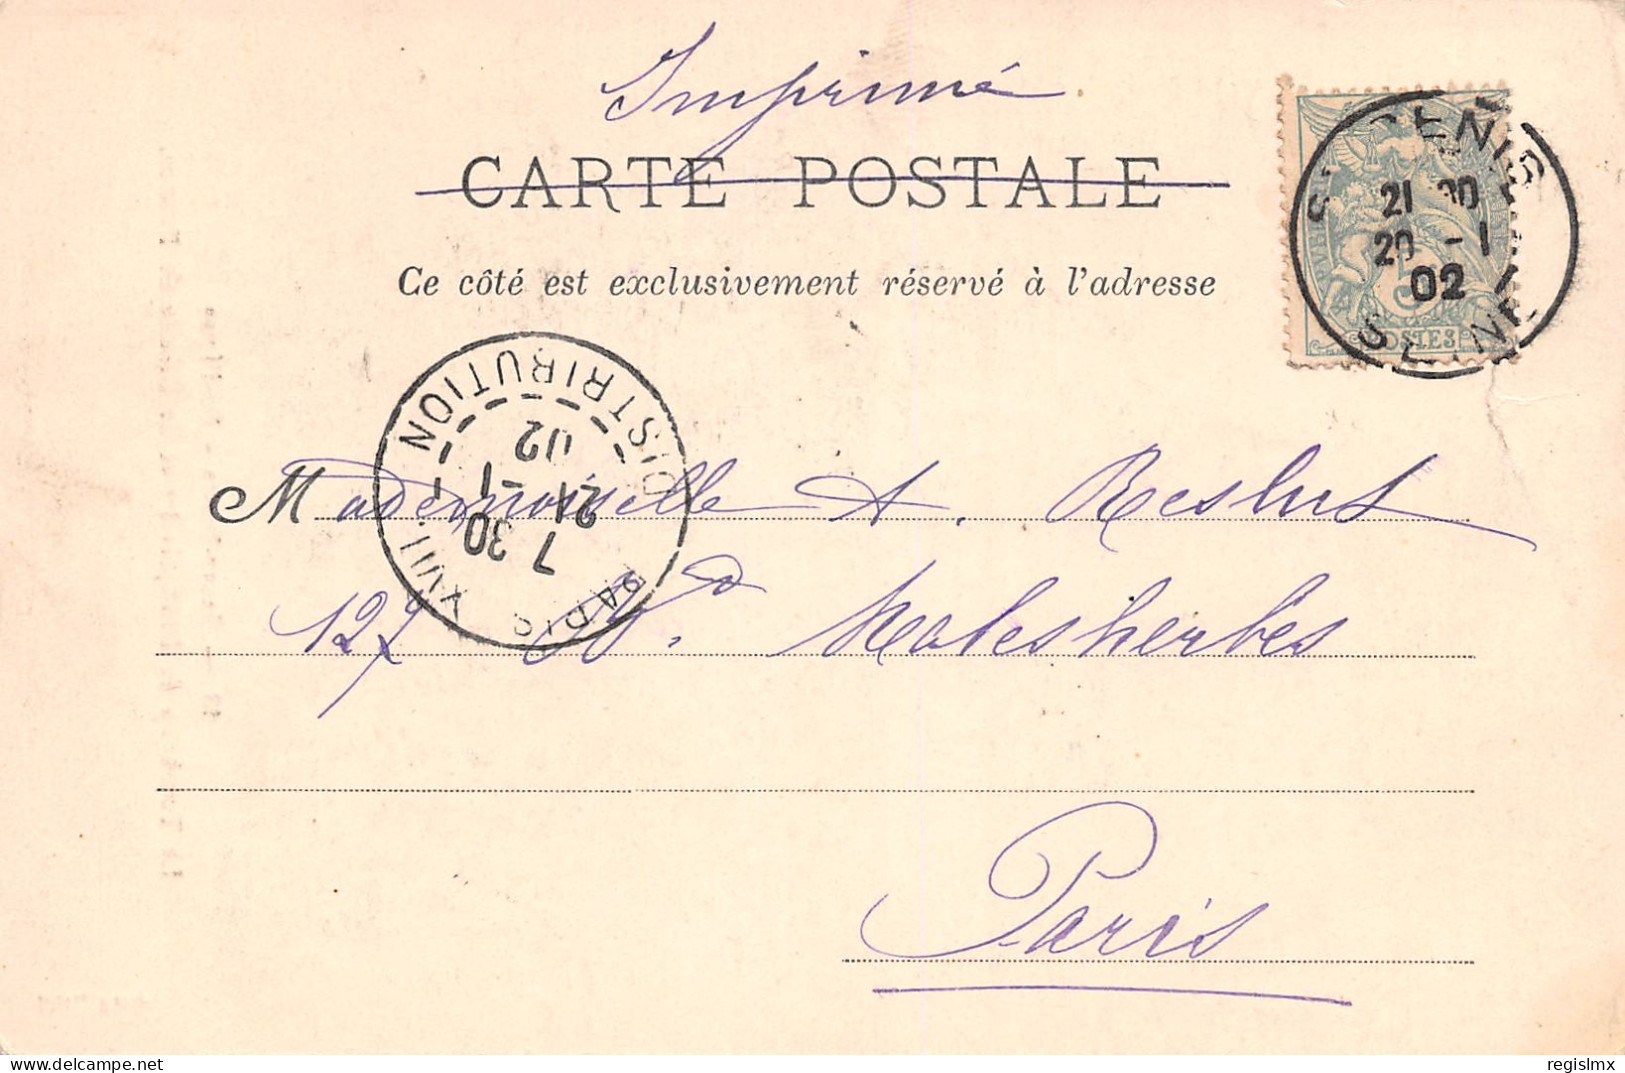 Imprimé
CARTE POSTALE
Ce côté est exclusivement réservé à l'adresse
ST DENIS
21 30
20 -1
02
SEINE
POSTES
DISTRIBUTION
PARIS XVII
7 30
21 -1
02
Mademoiselle A.
127 Bd. Malesherbes
Paris
www.delcampe.net
regislmx